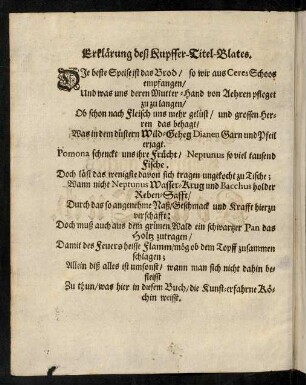 Erklärung deß Kupffer-Titel-Blates.
DJe beste Speise ist das Brod/ so wir aus Ceres Schoos
empfangen/
Und was uns deren Mutter-Hand von Aehren pfleget
zu zu langen/
Ob schon nach Fleisch uns mehr gelüst/ und grossen Her-
ren das behagt/
Was in dem düstern Wild-Geheg Dianen Garn und Pfeil
erjagt.
Pomona schenckt uns ihre Frücht/ Neptunus so viel tausend
Fische.
Doch läst das wenigste davon sich tragen ungekocht zu Tische;
Wann nicht Neptunus Wasser-Krug und Bacchus holder
Reben-Safft/
Durch das so angenehme Naß/ Geschmack und Krafft hierzu
verschafft;
Doch muß auch aus dem grünen Wald ein schwartzer Pan das
Holtz zutragen/
Damit des Feuers heisse Flamm/ mög ob dem Topff zusammen
schlagen;
Allein diß alles ist umsonst/ wann man sich nicht dahin be-
fleisst
Zu thun/ was hier in diesem Buch/ die Kunst-erfahrne Kö-
chin weisst.